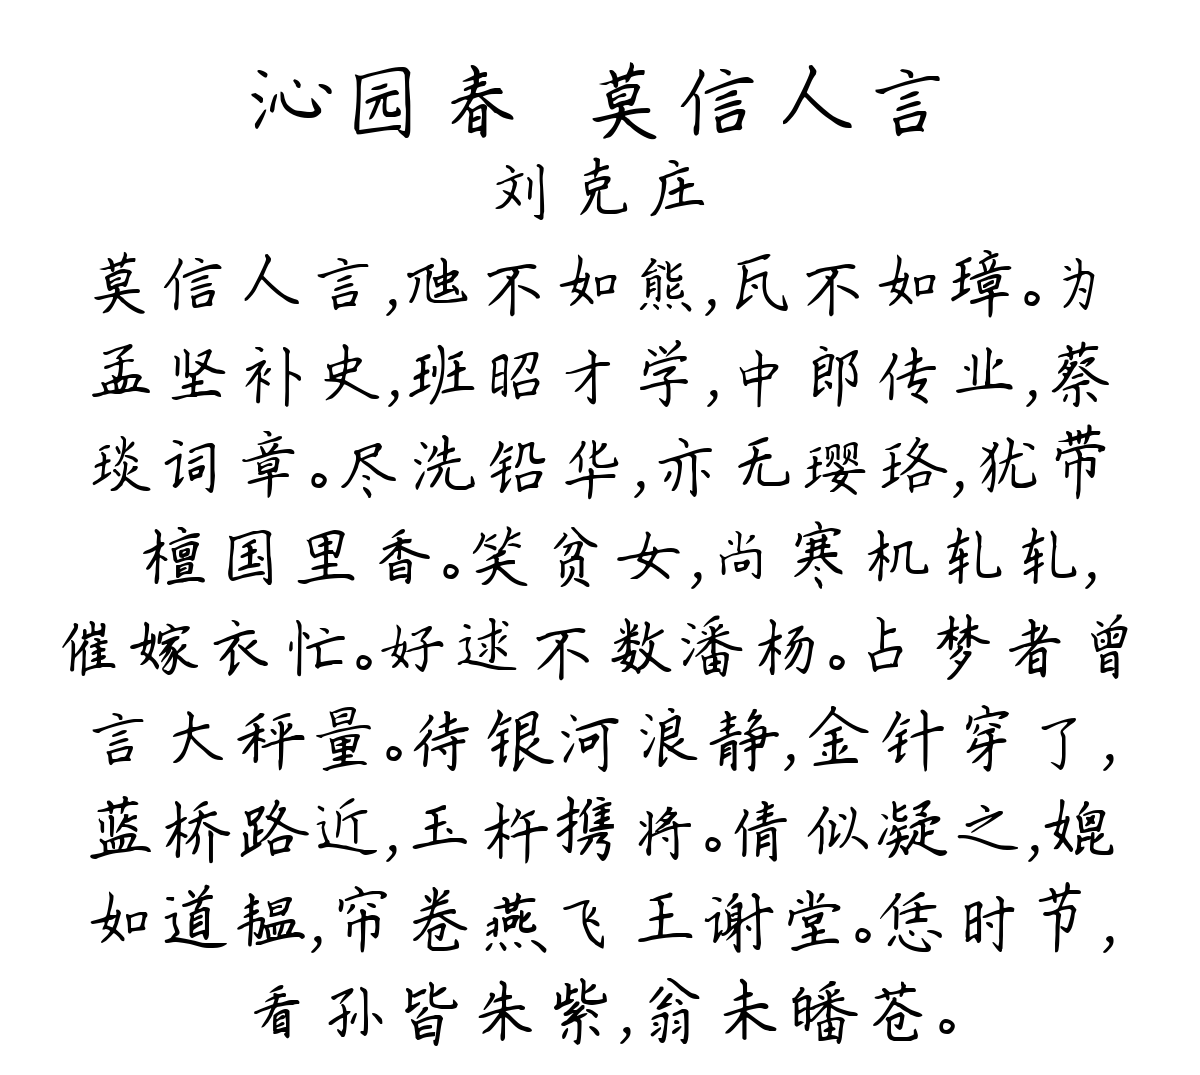 沁园春 莫信人言
刘克庄
莫信人言,虺不如熊,瓦不如璋。为
孟坚补史,班昭才学,中郎传业,蔡
琰词章。尽洗铅华,亦无璎珞,犹带
檀国里香。笑贫女,尚寒机轧轧,
催嫁衣忙。好逑不数潘杨。占梦者曾
言大秤量。待银河浪静,金针穿了,
蓝桥路近,玉杵携将。倩似凝之,媲
如道韫,帘卷燕飞王谢堂。恁时节,
看孙皆朱紫,翁未皤苍。